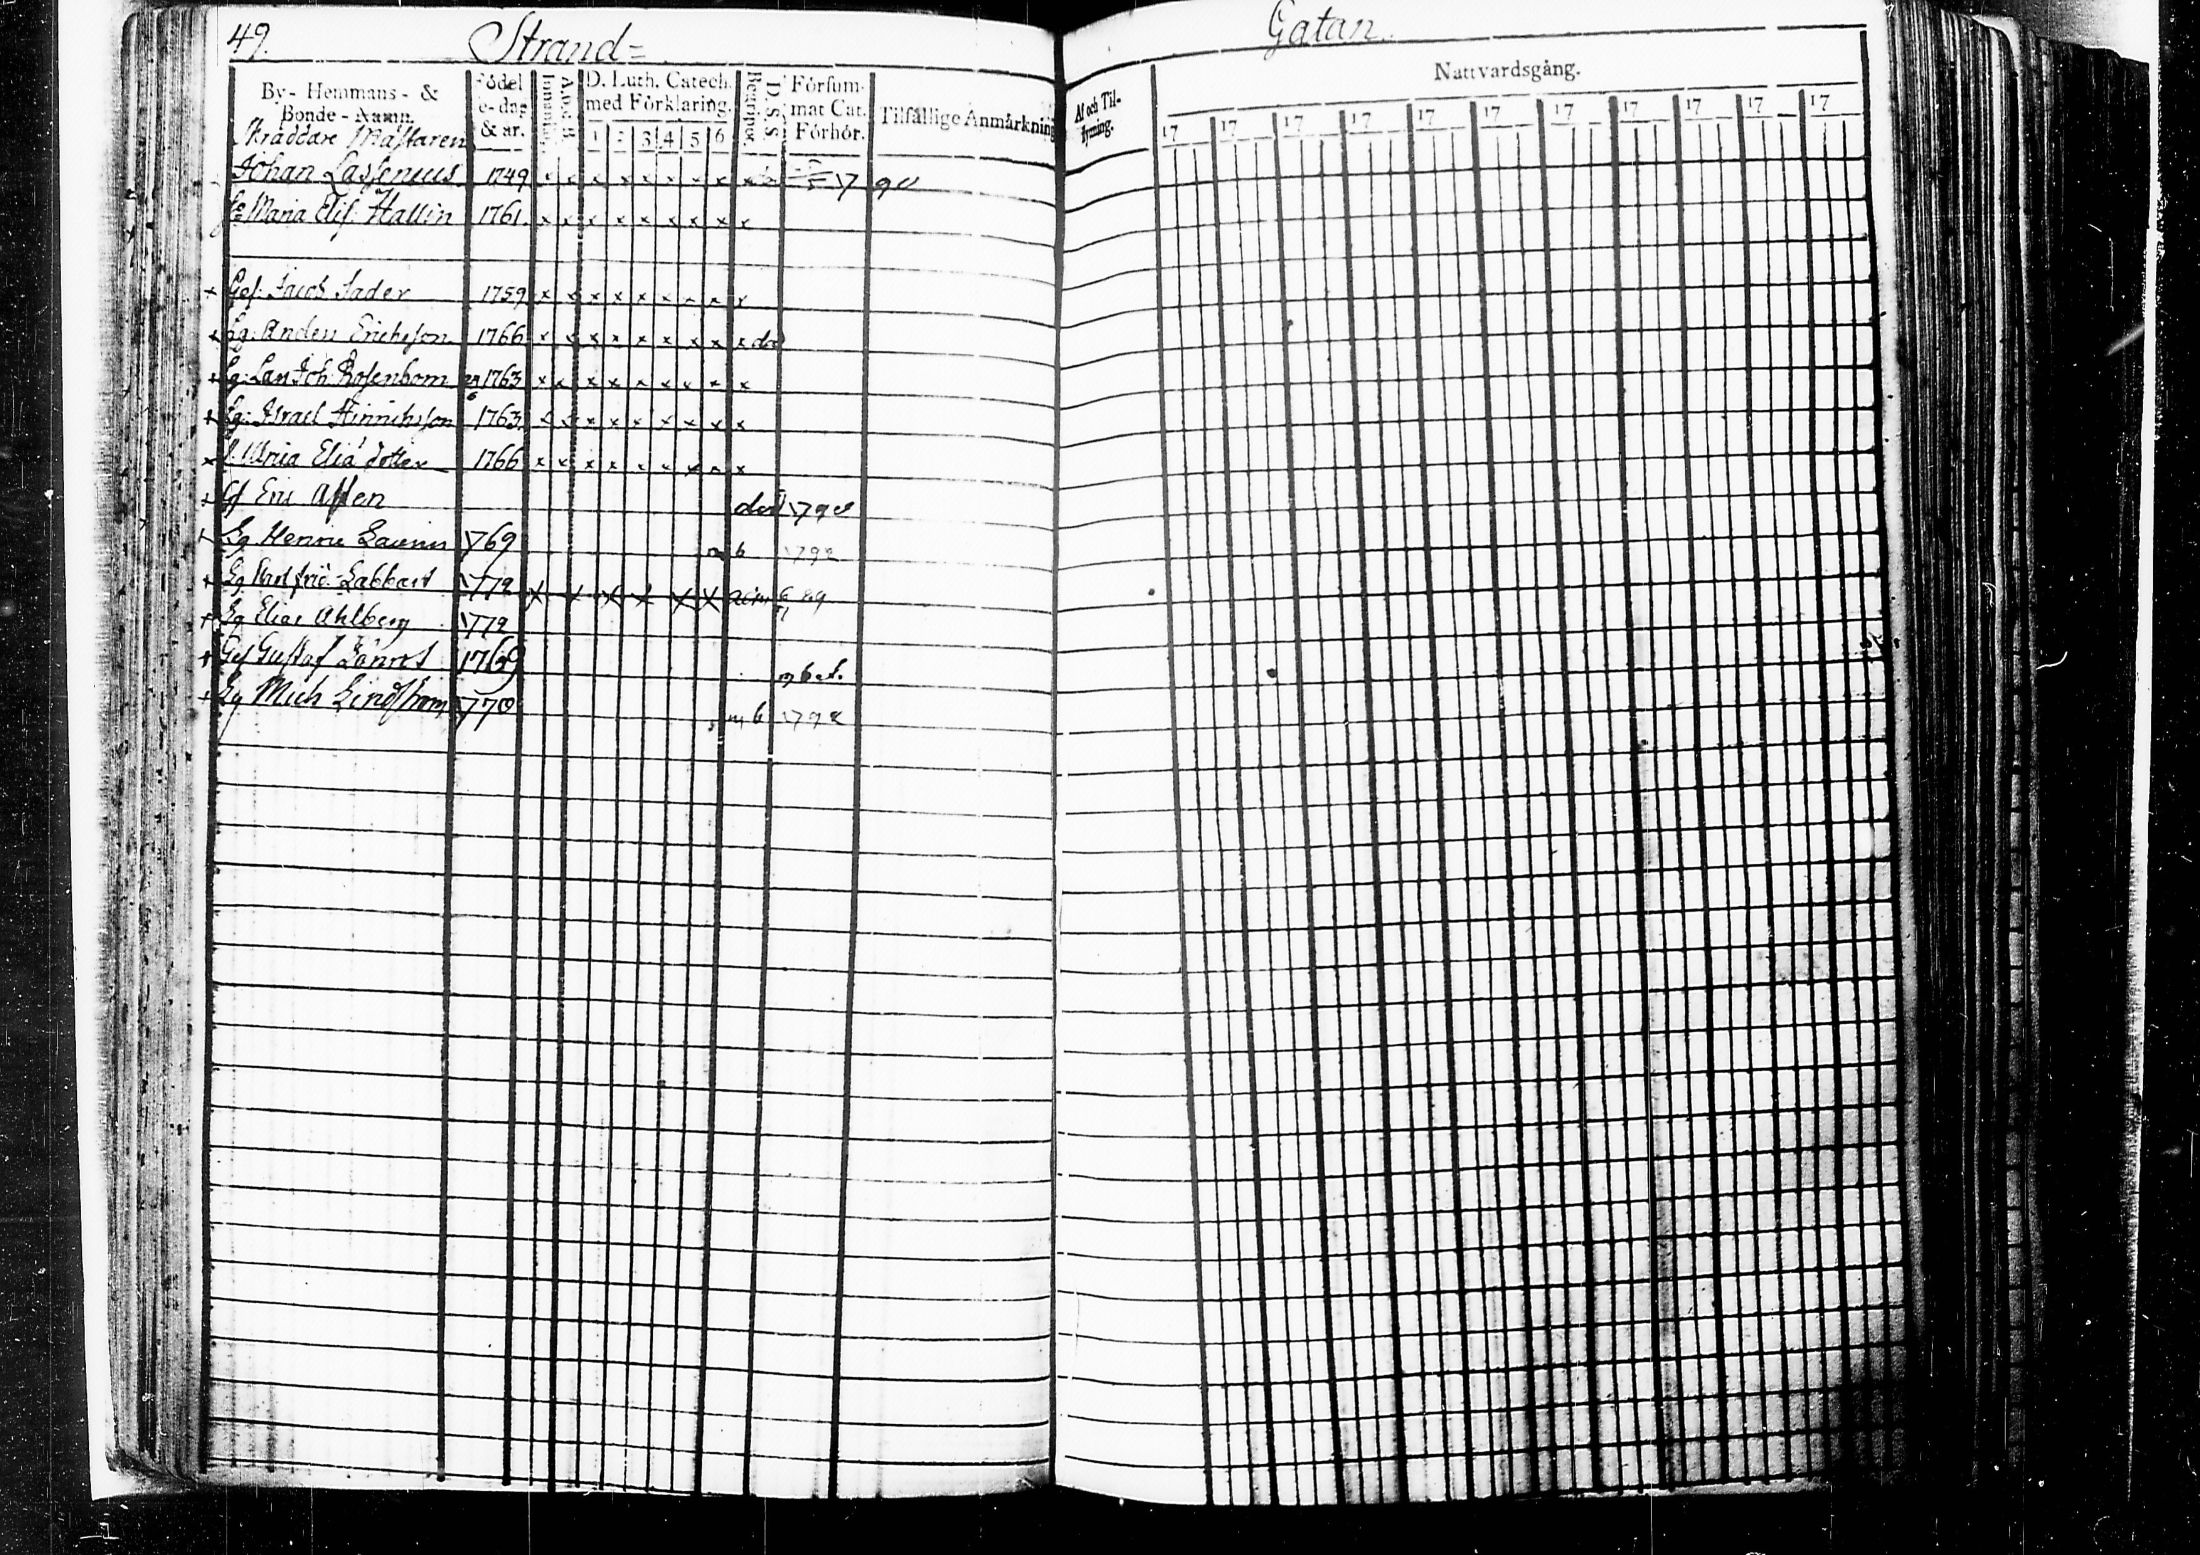 49. Strand= Gatan.
By- Hemmans- & Bonde-Namn.
Födelse-dag & år.
Innantil.
A. o. B.
D. Luth. Catech. med Förklaring.
1 2 3 4 5 6
Begrepet.
D. S. S.
Försummat Cat. Förhör.
Tilfällige Anmärkning
Af och Tilflyttning.
Nattvardsgång.
17 17 17 17 17 17 17 17 17 17 17
Skräddare Mästaren
Johan Lassenius 1749 x x x x x x x x x 17 90
Maria Elis. Hallin 1761. x x x x x x x x x
x Ges. Jacob Sader 1759 x x x x x x x x x
x Lg. Anders Ericksson 1766 x x x x x x x x x
x Lg. Joh. Rosenbom 1763 x x x x x x x x x
x Lg. Israel Hinrichsson 1763 x x x x x x x x x
x Maria Elia dotter 1766 x x x x x x x x x
x 1790
Lg 1769 b 1792
x Lg 1772 x x x x x x 89
x Lg Elias Ahlberg 1772
x Ges Gustaf Lönrot 1769
x Lg Mich Lindström 1770 m b 1792